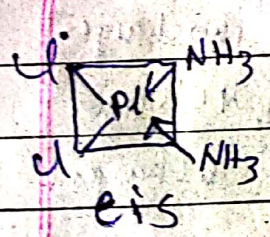 Cl NH3
Pt
Cl NH3
cis